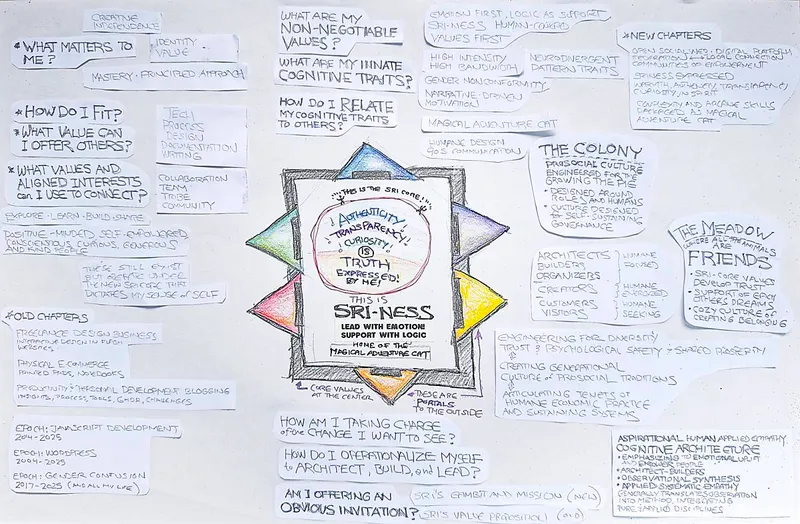 CREATIVE
INDEPENDENCE
* WHAT MATTERS TO
ME?
IDENTITY
VALUE
MASTERY · PRINCIPLED APPROACH
* HOW DO I FIT?
* WHAT VALUE CAN
I OFFER, OTHERS?
* WHAT VALUES AND
ALIGNED INTERESTS
can I USE TO CONNECT?
TECH
PROCESS
DESIGN
DOCUMENTATION
WRITING
COLLABORATION
TEAM
TRIBE
COMMUNITY
EXPLORE · LEARN · BUILD · SHARE
POSITIVE-MINDED, SELF-EMPOWERED,
CONSCIENTIOUS, CURIOUS, GENEROUS
AND KIND PEOPLE
THESE STILL EXIST
THE NEW SRI CORE THAT
DICTATES MY SENSE of SELF
* OLD CHAPTERS
FREELANCE DESIGN BUSINESS
INTERACTIVE DESIGN IN FLASH
WEBSITES
PHYSICAL E-COMMERCE
PRINTED PADS, NOTEBOOKS
PRODUCTIVITY + PERSONAL DEVELOPMENT BLOGGING
INSIGHTS, PROCESS, TOOLS, GHDR, CHALLENGES
EPOCH: JAVASCRIPT DEVELOPMENT
2014-2025
EPOCH: WORDPRESS
2004-2025
EPOCH: GENDER CONFUSION
2017-2025 (AND ALL MY LIFE)
WHAT ARE MY
NON-NEGOTIABLE
VALUES?
WHAT ARE MY INNATE
COGNITIVE TRAITS?
HOW DO I RELATE
MY COGNITIVE TRAITS
TO OTHERS?
EMOTION FIRST, LOGIC AS SUPPORT
SRI-NESS HUMAN-CORED
VALUES FIRST
HIGH INTENSITY
HIGH BANDWIDTH
NEURODIVERGENT
PATTERN TRAITS
GENDER NONCONFORMITY
NARRATIVE-DRIVEN
MOTIVATION
MAGICAL ADVENTURE CAT
HUMANE DESIGN
90S COMMUNICATION
"THIS IS THE SRI CORE!"
AUTHENTICITY
TRANSPARENCY!
CURIOSITY!
IS
TRUTH
EXPRESSED
BY ME!
THIS IS
SRI-NESS
LEAD WITH EMOTION!
SUPPORT WITH LOGIC
HOME OF THE
MAGICAL ADVENTURE CAT
CORE VALUES
AT THE CENTER
THESE ARE
PORTALS
TO THE OUTSIDE
HOW AM I TAKING CHARGE
of the CHANGE I WANT TO SEE?
HOW DO I OPERATIONALIZE MYSELF
to ARCHITECT, BUILD, and LEAD?
AM I OFFERING AN
OBVIOUS INVITATION?
SRI'S GAMBIT AND MISSION (NEW)
SRI'S VALUE PROPOSITION (OLD)
* NEW CHAPTERS
OPEN SOCIALINGS · DIGITAL PLATFORM
FEDERATION LOCAL CONNECTION
COMMUNITIES OF EMPOWERMENT
SRINESS EXPRESSED
WARMTH, AUTHENTICITY, TRANSPARENCY
CURIOSITY, INSIGHT
COMPLEX AND ARCANE SKILLS
PACKAGED AS MAGICAL
ADVENTURE CAT
THE COLONY
PROSOCIAL CULTURE
ENGINEERED FOR THE
GROWING THE PIE
• DESIGNED AROUND
ROLES AND HUMANS
• CULTURE DESIGNED
for SELF-SUSTAINING
GOVERNANCE
THE MEADOW
WHERE ALL THE ANIMALS
ARE
FRIENDS
• SRI-CORE VALUES
DEVELOP TRUST
• SUPPORT OF EACH
OTHERS DREAMS
• COZY CULTURE OF
CREATING BELONGING
ARCHITECTS
BUILDERS
ORGANIZERS
CREATORS
CUSTOMERS
VISITORS
HUMANE
FOCUSED
HUMANE
HUMANE
SEEKING
ENGINEERING FOR DIVERSITY
TRUST + PSYCHOLOGICAL SAFETY + SHARED PROSPERITY
CREATING GENERATIONAL
CULTURE OF PROSOCIAL TRADITIONS
ARTICULATING TENETS OF
HUMANE ECONOMIC PRACTICE
AND SUSTAINING SYSTEMS
ASPIRATIONAL HUMAN APPLIED EMPATHY
COGNITIVE ARCHITECTURE
• EMPHASIZING to EMOTIONAL UPLIFT
AND EMPOWER PEOPLE
• ARCHITECT-BUILDERS
• OBSERVATIONAL SYNTHESIS
• APPLIED SYSTEMATIC EMPATHY
GENERALLY TRANSLATES OBSERVATION
INTO METHOD, INTEGRATING
PURE/APPLIED DISCIPLINES